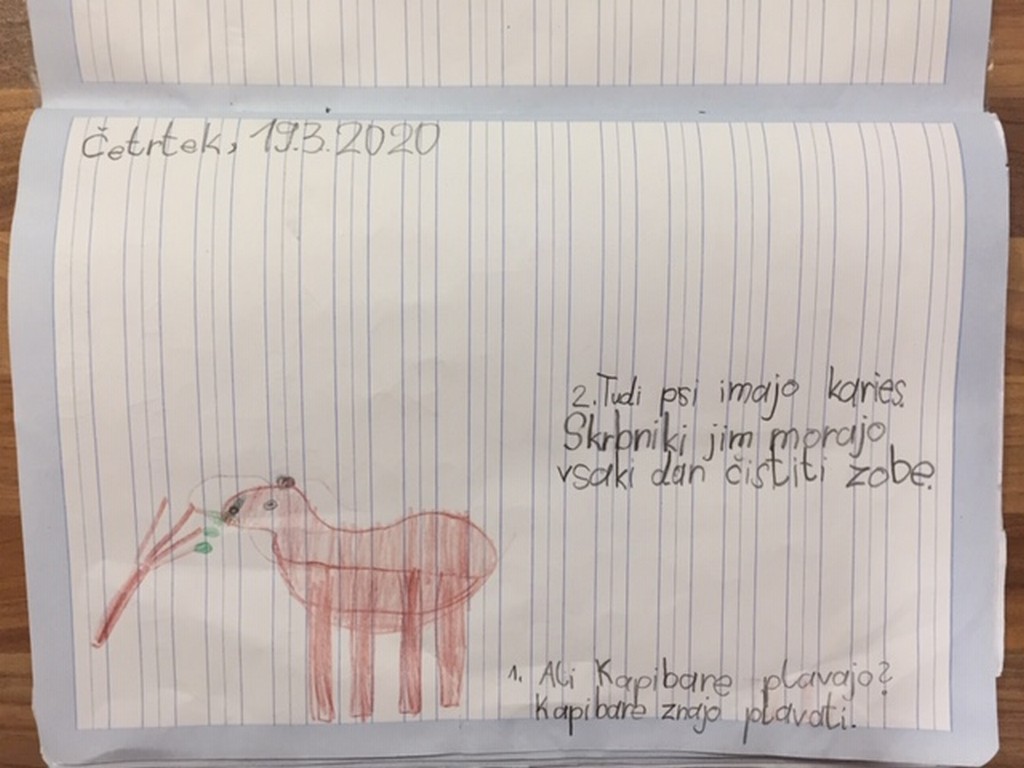 Četrtek, 19.3.2020
2. Tudi psi imajo karies.
Skrbniki jim morajo
vsaki dan čistiti zobe.
1. Ali Kapibare plavajo?
Kapibare znajo plavati.